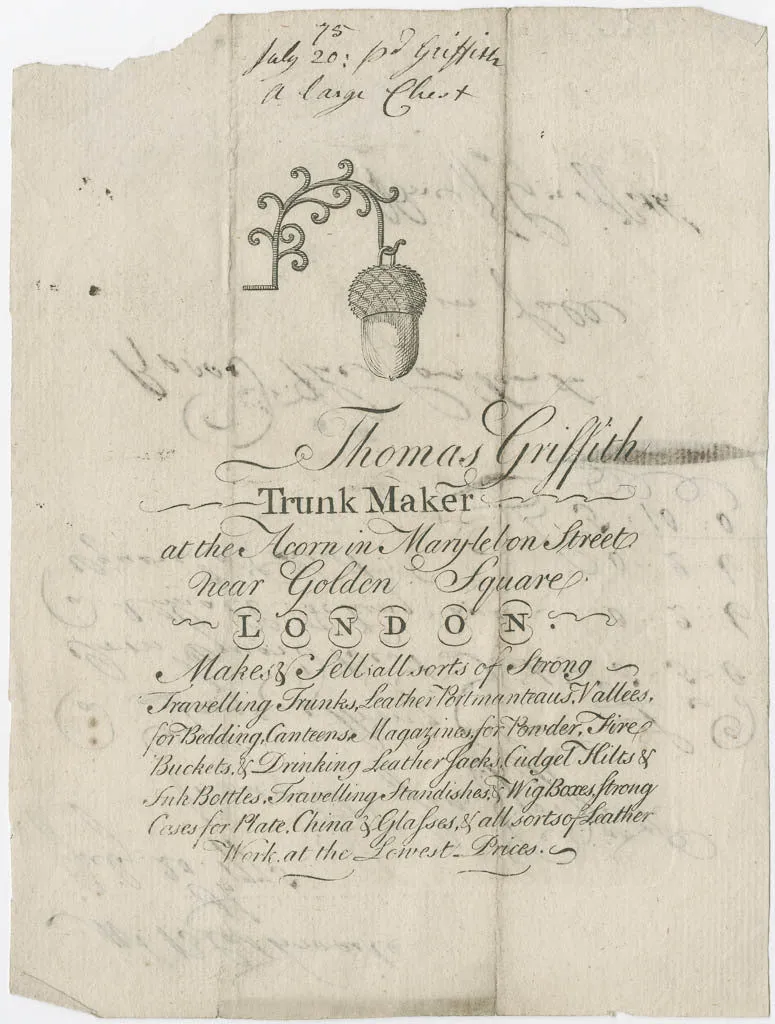 75
July 20: pd Griffith
A large Chest
Thomas Griffith
Trunk Maker
at the Acorn in Marylebon Street
near Golden Square
LONDON.
Makes & Sells all sorts of Strong
Travelling Trunks, Leather Portmanteaus, Vallees,
for Bedding, Canteens, Magazines for Powder, Fire
Buckets, & Drinking Leather Jacks, Cudgel Hilts &
Ink Bottles, Travelling Standishes, & Wig Boxes, Strong
Cases for Plate, China & Glasses, & all sorts of Leather
Work, at the Lowest Prices.